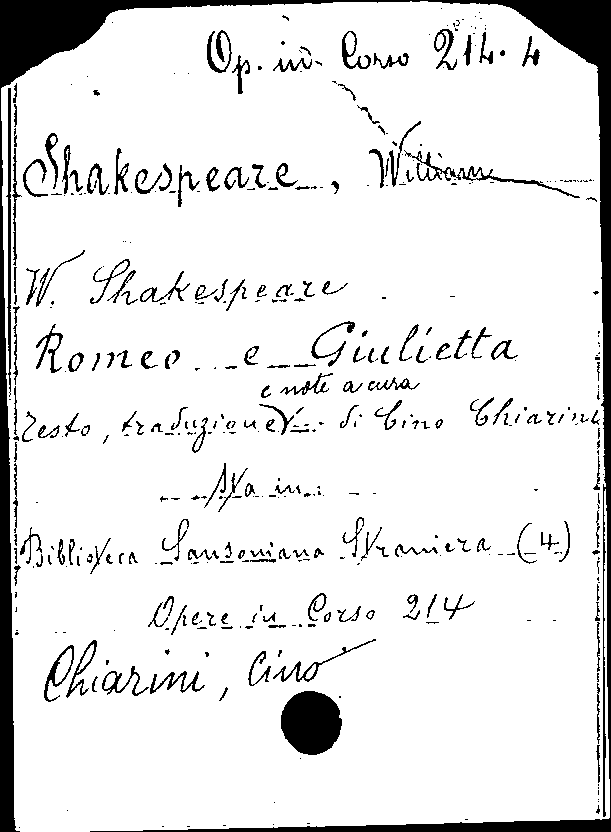 Op. in Corso 214.4
Shakespeare, William
W. Shakespeare
Romeo e Giulietta
e note a cura
Testo, traduzione di Cino Chiarini
Sta in:
Biblioteca Sansoniana Straniera (4)
Opere in Corso 214
Chiarini, Cino